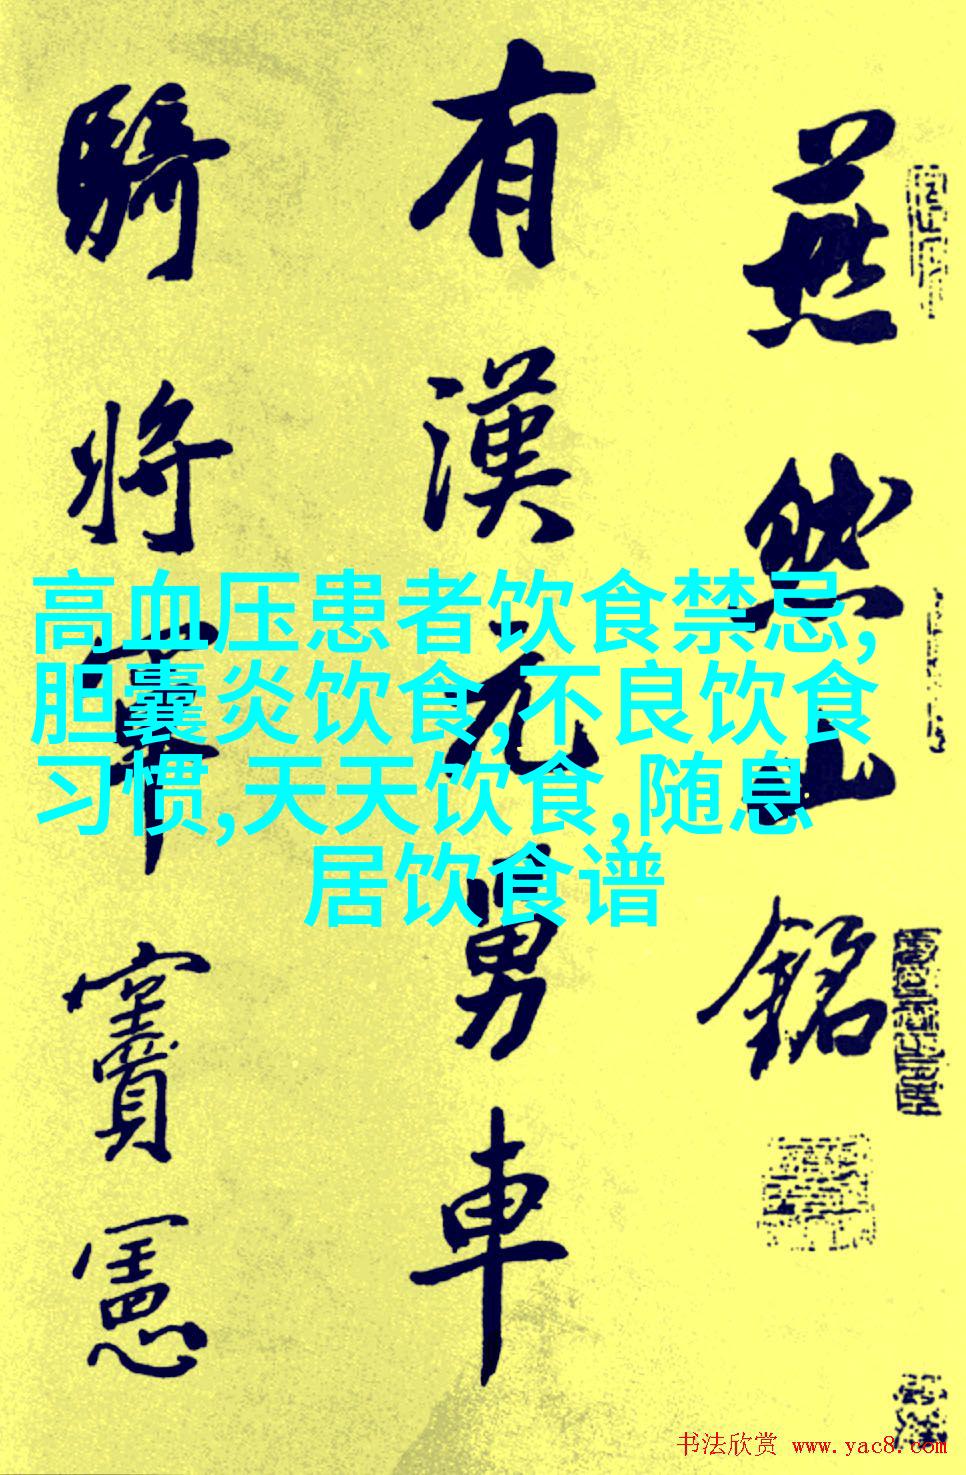 燕然山銘
有漢元舅車
騎將軍竇憲
高血压患者饮食禁忌,
胆囊炎饮食,不良饮食
习惯,天天饮食,随息
居饮食谱
书法欣赏 www.yac8.com